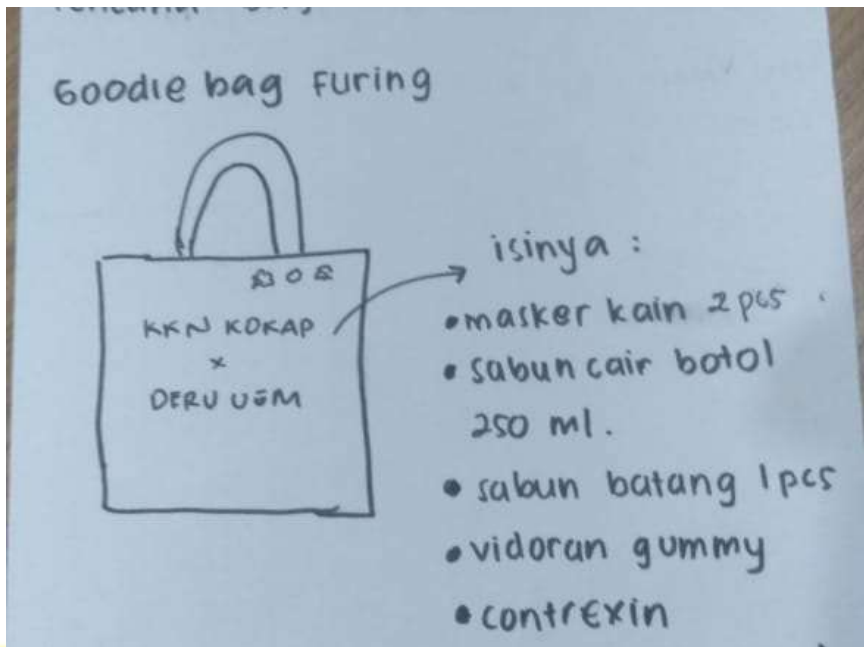 Goodie bag Furing
KKN KOKAP
x
DERU UGM
isinya :
• masker kain 2 pcs
• sabun cair botol
250 ml.
• sabun batang 1 pcs
• vidoran gummy
• contrExin